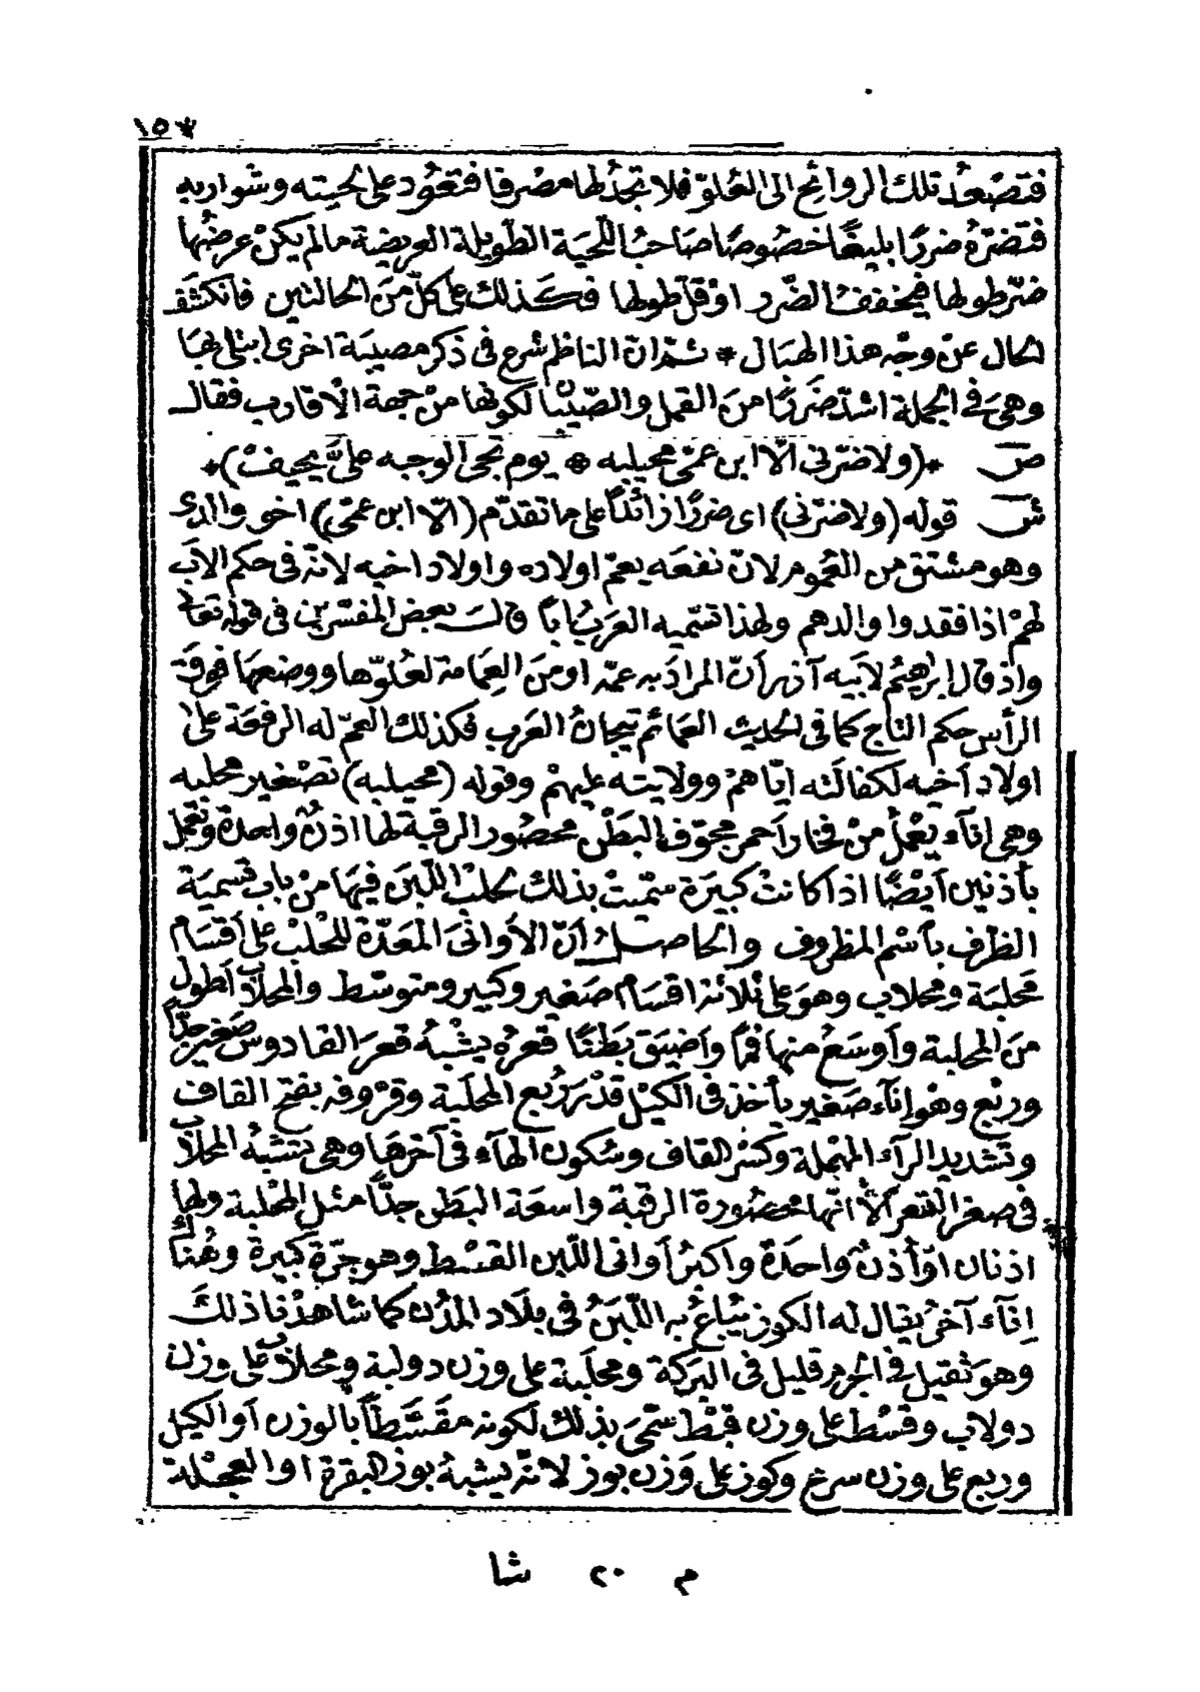 ١٥٣
فتصعد تلك الروائح الى العلوّ فلا تجد لها مصرفا فتعود على لحيته وشواربه
فتضرّه ضررًا بليغًا خصُوصًا صَاحبُ اللّحيَة الطّويلة العريضة مالم يكنْ عرضُها
ضرّ طولها فيخفف الضّرر اوْ قلّ طولها فكذلك على كلّ منَ الحالتين فانكشف
الحال عنْ وجْه هذا الهبَال * ثمّ ان الناظم شرع في ذكر مصيبَة اخرى ابتلى بهَا
وهيَ في الجملة اشدّ ضَررًا منَ القمل والصّيبَان لكونها منْ جهة الأقارب فقال
ص *(ولا ضرّني الّا ابن عمّي محيلبه * يوم تجي الوجبه عليَّ يحيفْ)*
ش قوله (ولا ضرّني) اى ضررًا زائدًا على ما تقدّم (الّا ابن عمّي) اخو والدى
وهو مشتق من العُموم لانّ نفعَه يعمّ اولاده واولاد اخيه لانّه في حكم الاَب
لهمْ اذا فقدوا والدهم ولهذا تسّميه العرَبُ اَبًا قالَ بعض المفسّرين في قوله تعالى
واذ قال ابرٰهيم لاَبيه آذر أنّ المرادَ به عمّه او منَ العِمَامة لعُلوّها ووضعهَا فوقَ
الرأس حكم التاج كما في الحديث العمَائم تيجانُ العَرب فكذلك العمّ له الرفعَة علىٰ
اولاد اَخيه لكفالته ايّاهمْ وولايته عليهمْ وقوله (محيلبه) تصْغير محلبه
وهي اِنآء يعْملُ منْ فخار اَحمر مجوّف البَطْن محصُور الرقبة لها اذنٌ واحدة وتعمل
بأذنين اَيضًا اذا كانتْ كبيرَة سمّيتْ بذلك لحلبْ اللّبَن فيهَا منْ باب تسمية
الظرْف بأسْم المظروف والحاصل أنّ الاَوانيَ المعَدّة للحْلبْ على اَقسَام
محْلبَة ومحلاب وهوَ على ثلاثة اقسَام صَغير وكبير ومتوسّط والمحلاب اَطول
منَ المحلبة واَوسَعُ منها فمًا واَضيَق بَطنًا قعرُه يشْبهُ قعرَ القادوس صَغير جدًّا
وربْع وهوْ اِنآء صَغير يأخذ في الكيْل قدْرَ رُبع المحلَبة وقرْوفه بفتح القاف
وتشديد الرآء المهْملة وكسْر القاف وسُكون الهآء في آخرهَا وهي تشبهُ المحلاَب
في صغر القعر الّا أنّها محصُورة الرقبة واسعَة البَطن جدًّا مثل المحْلبة ولها
اذنان اوْ أذنٌ واحدَةٌ واكبرُ اَوانى اللّبن القسْط وهو جرّة كبيرةٌ وهُناك
اِنآء آخرُ يقال له الكوز يُبَاعُ به اللّبَنُ في بلاَد المدُن كما شاهدْنا ذلكَ
وهوَ ثقيل في الجرم قليل في البَركة ومحلَبة على وزن دولبة ومحلاَب على وزن
دولاب وقسْط على وزن قبْط سمّيَ بذلك لكونه مقسّطًا بالوزن اَو الكيل
وربع على وزن سرع وكوز على وَزن بوز لانّه يشبهُ بوز البقرة او العجْلة
م ٢٠ شا